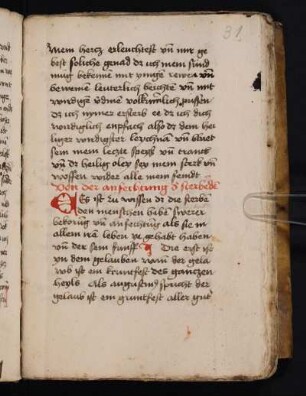 31
mein hercz erleuchtest vn̄ mir ge
best soliche genad dz ich mein sund
mug bekenne mit yniger rewen vn̄
beweine leuterlich beichte vn̄ mit
wirdig volkumlich pussen
dz ich nymer ersterb ee dz ich dich
wirdiglich enpfach also dz dein hei
liger wirdigster leychnā vn̄ bluet
sein mein leczte speys vn̄ tranck
vn̄ dz heilig oley sey mein sterck vn̄
woffen wider alle mein feindt
Von der anfechtung d sterbēdē
Es ist zu wissen dz die sterbe
den menschen habē swerer
bekorūg vn̄ anfechtūg als sie in
allem irē leben ye gehabt haben
vn̄ der sein funff Die erst ist
vn̄ dem gelauben wan der gela
wb ist ein gruntfest des ganczen
heyls als augustin9 spricht der
gelaub ist ein gruntfest aller gut